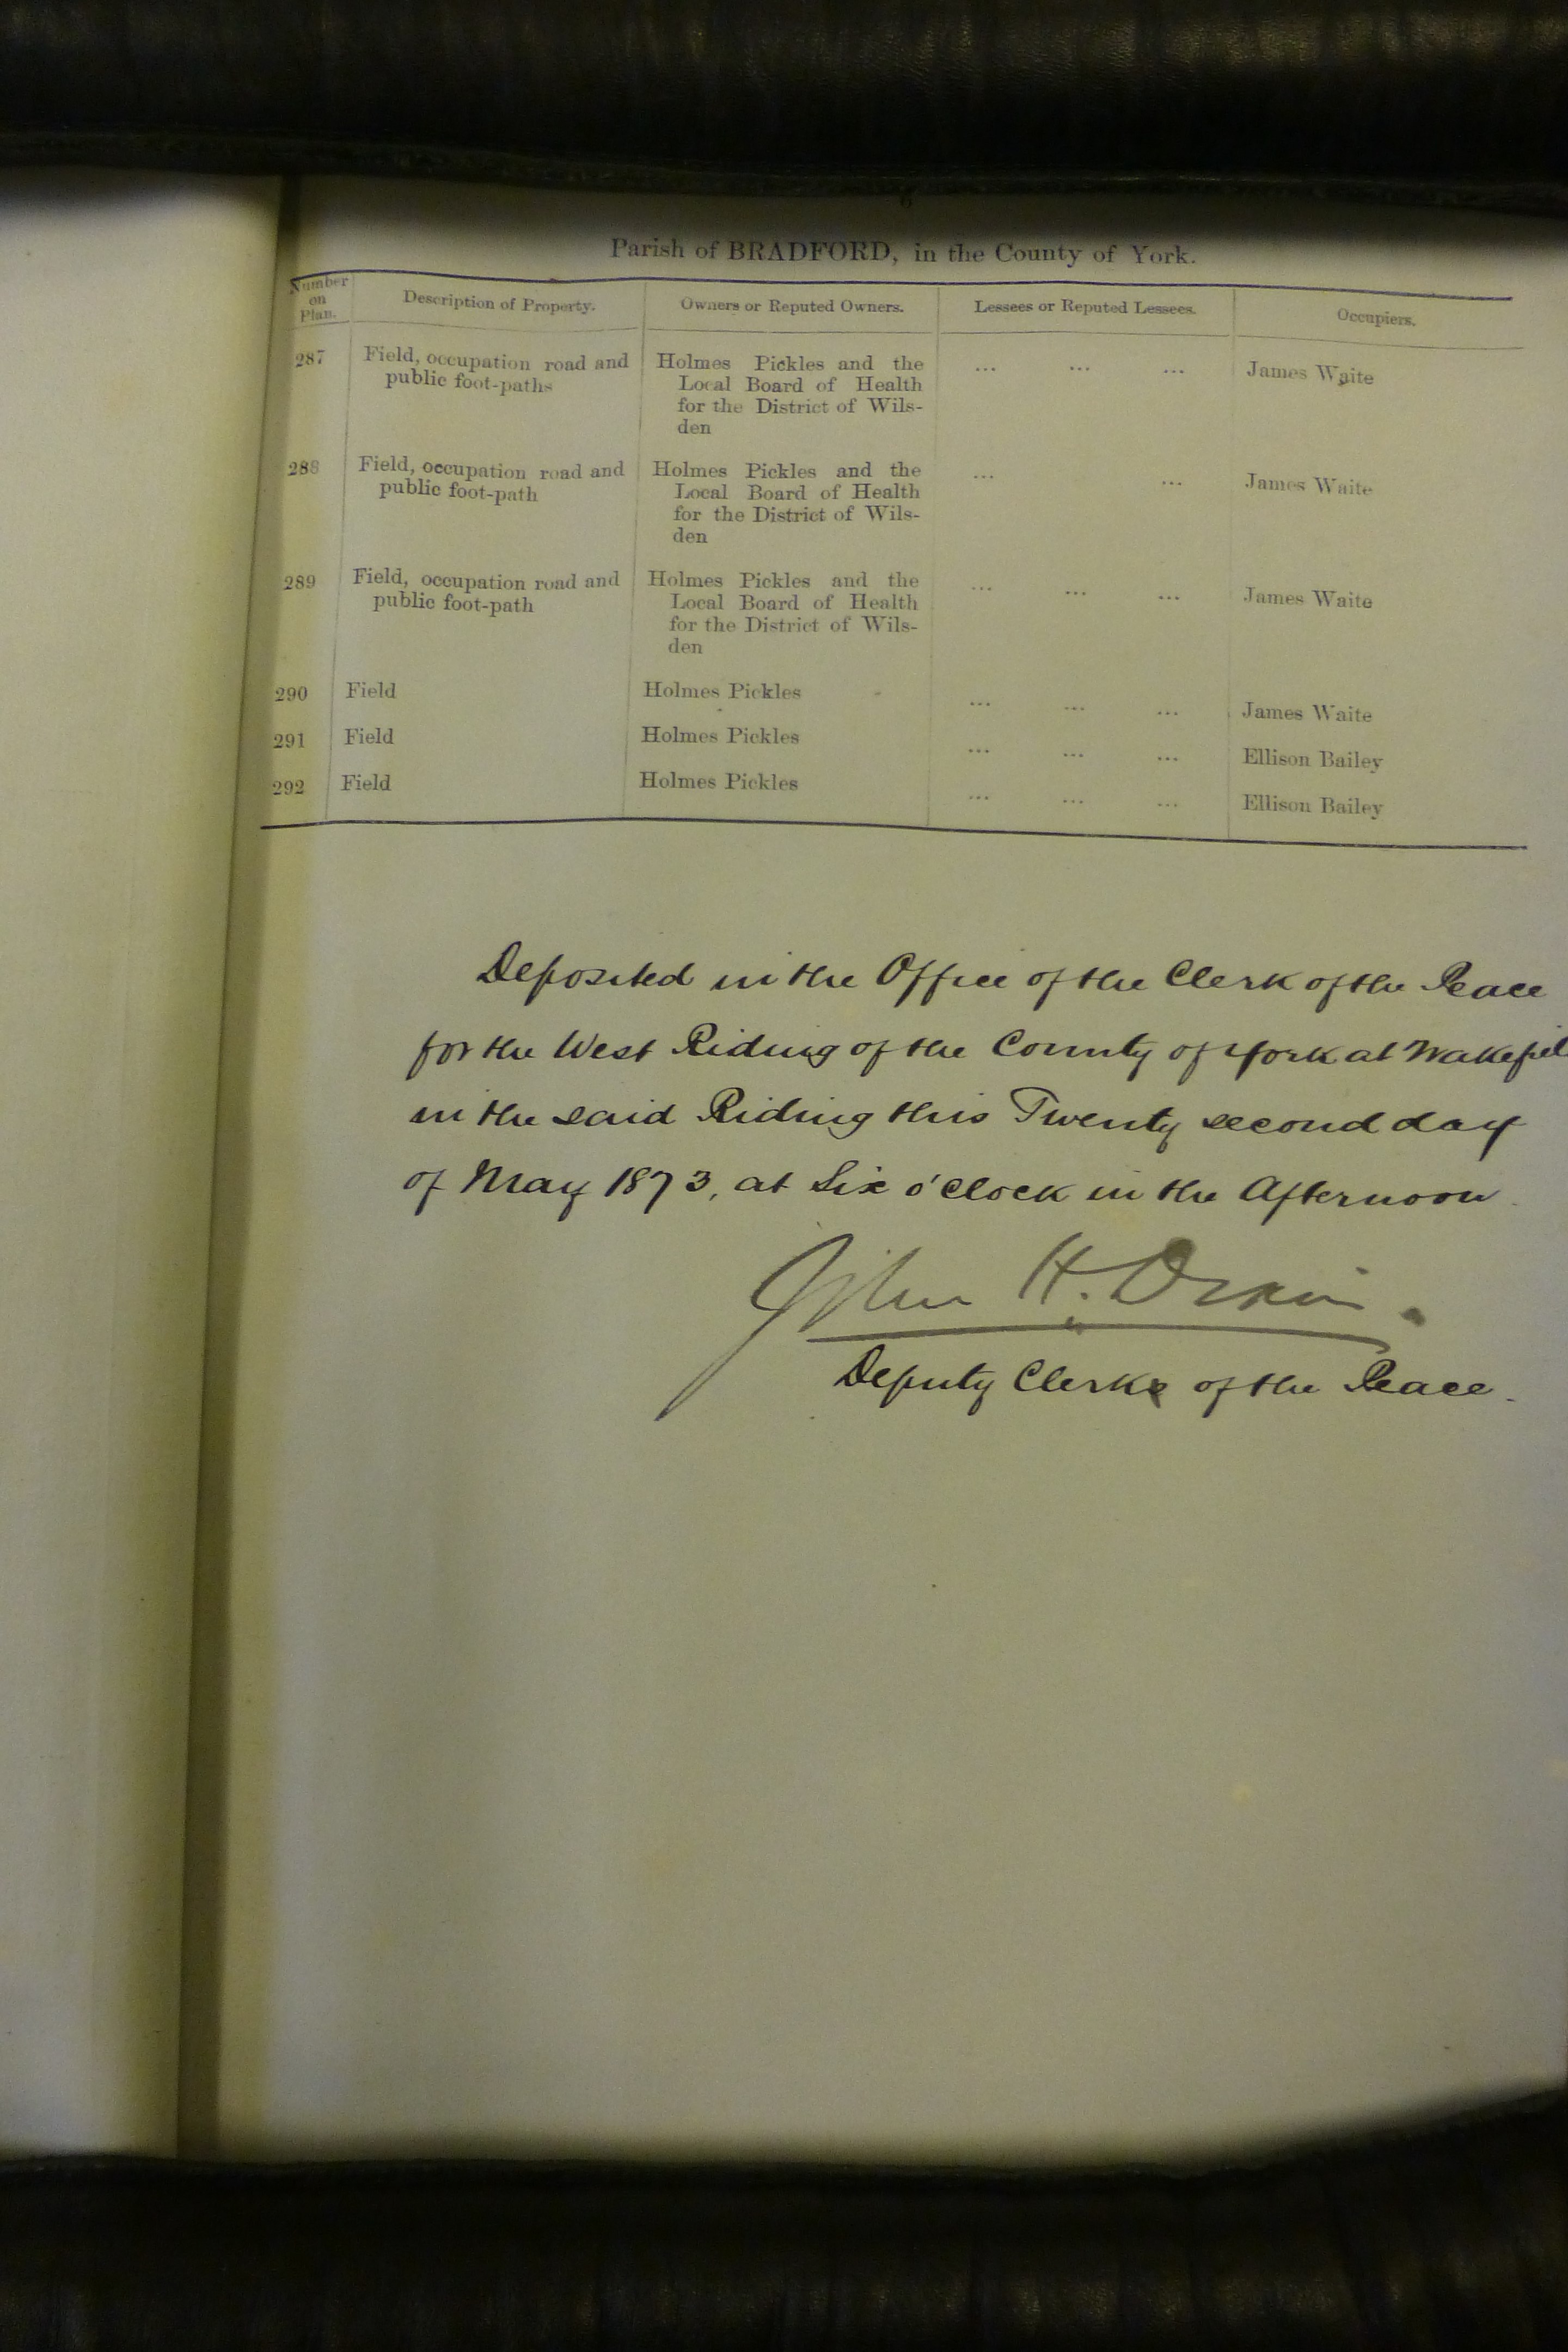 6
Parish of BRADFORD, in the County of York.
Number on Plan. Description of Property. Owners or Reputed Owners. Lessees or Reputed Lessees. Occupiers.
287 Field, occupation road and Holmes Pickles and the ... ... ... James Waite
public foot-paths Local Board of Health
for the District of Wils-
den
288 Field, occupation road and Holmes Pickles and the ... ... James Waite
public foot-path Local Board of Health
for the District of Wils-
den
289 Field, occupation road and Holmes Pickles and the ... ... ... James Waite
public foot-path Local Board of Health
for the District of Wils-
den
290 Field Holmes Pickles ... ... ... James Waite
291 Field Holmes Pickles ... ... ... Ellison Bailey
292 Field Holmes Pickles ... ... ... Ellison Bailey
Deposited in the Office of the Clerk of the Peace
for the West Riding of the County of York at Wakefiel
in the said Riding this Twenty second day
of May 1873, at Six o'Clock in the Afternoon.
John H.
Deputy Clerk of the Peace.